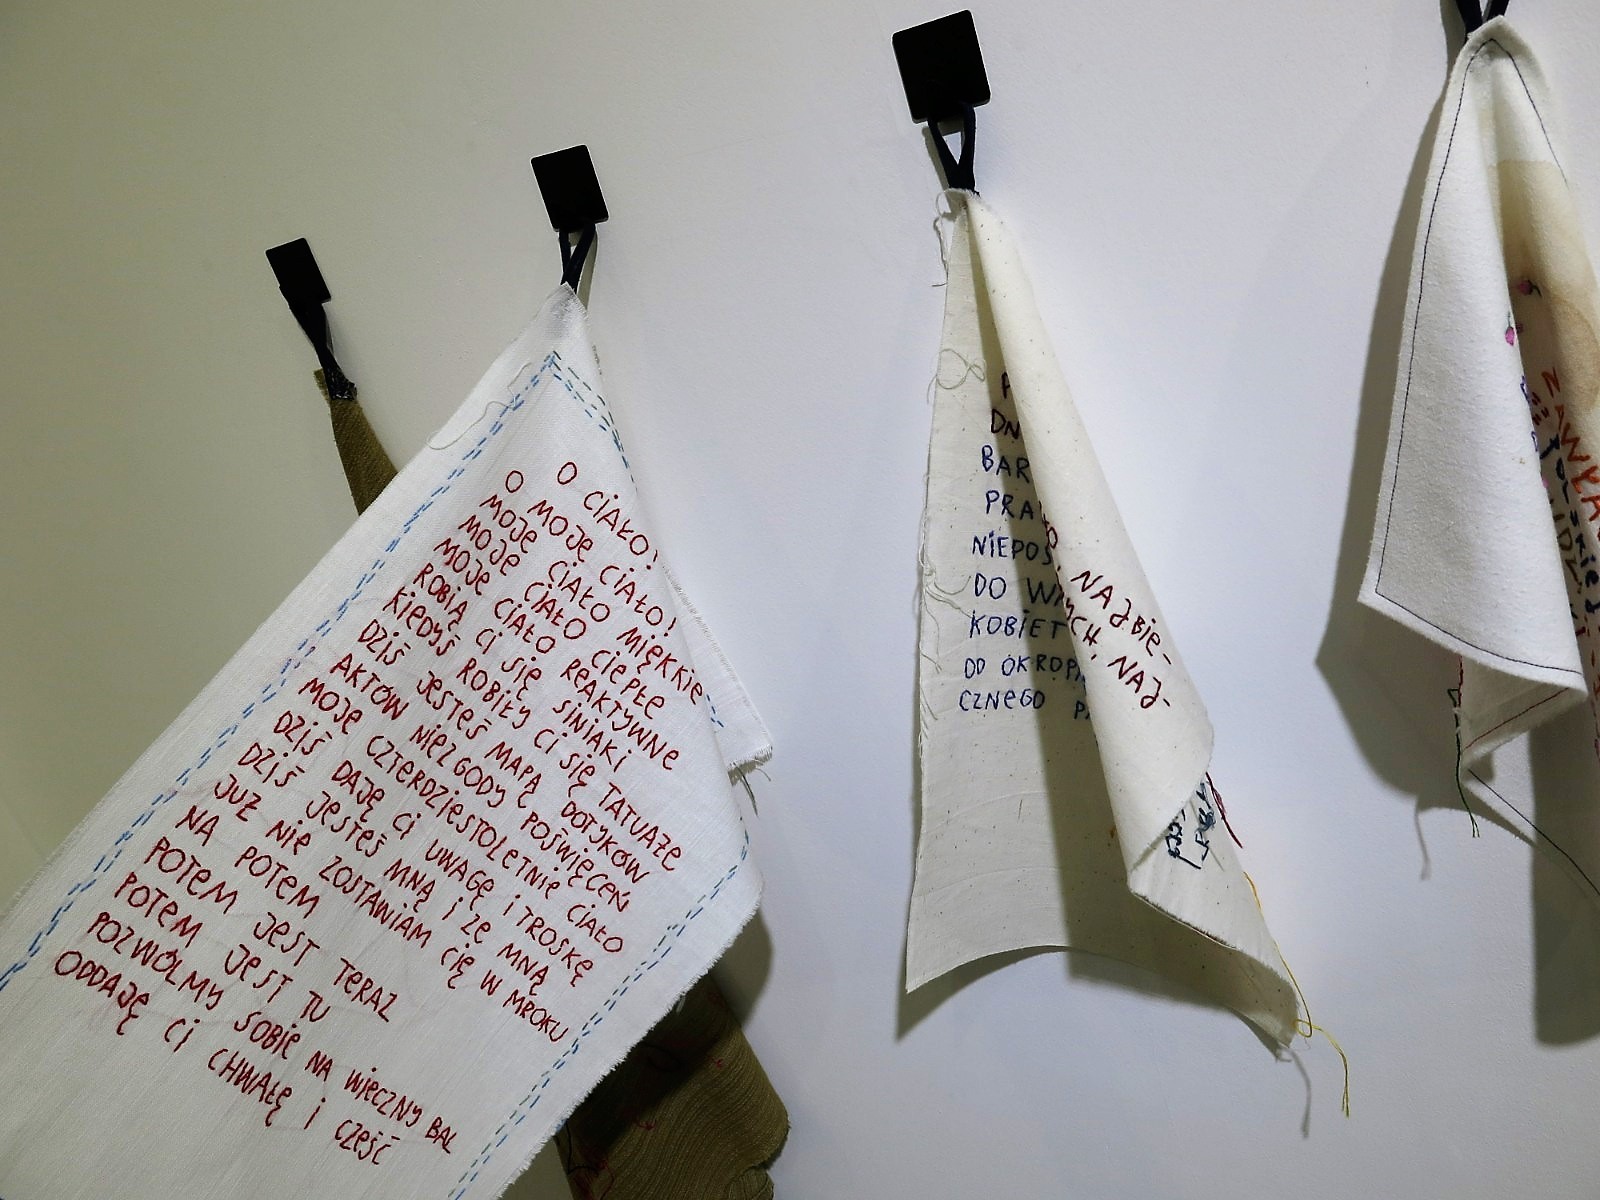 O CIAŁO!
O MOJE CIAŁO!
MOJE CIAŁO MIĘKKIE
MOJE CIAŁO CIEPŁE
MOJE CIAŁO REAKTYWNE
ROBIĄ CI SIĘ SINIAKI
KIEDYŚ ROBIŁY CI SIĘ TATUAŻE
DZIŚ JESTEŚ MAPĄ DOTYKÓW
AKTÓW NIEZGODY POŚWIĘCEŃ
MOJE CZTERDZIESTOLETNIE CIAŁO
DZIŚ DAJĘ CI UWAGĘ I TROSKĘ
DZIŚ JESTEŚ MNĄ I ZE MNĄ
JUŻ NIE ZOSTAWIAM CIĘ W MROKU
NA POTEM
POTEM JEST TERAZ
POTEM JEST TU
POZWÓLMY SOBIE NA WIECZNY BAL
ODDAJĘ CI CHWAŁĘ I CZEŚĆ
DN
BAR
PRA
NIEPOS
DO WA
KOBIET
OD OKROP
CZNEGO P
NAJBIE-
YCH, NAJ-